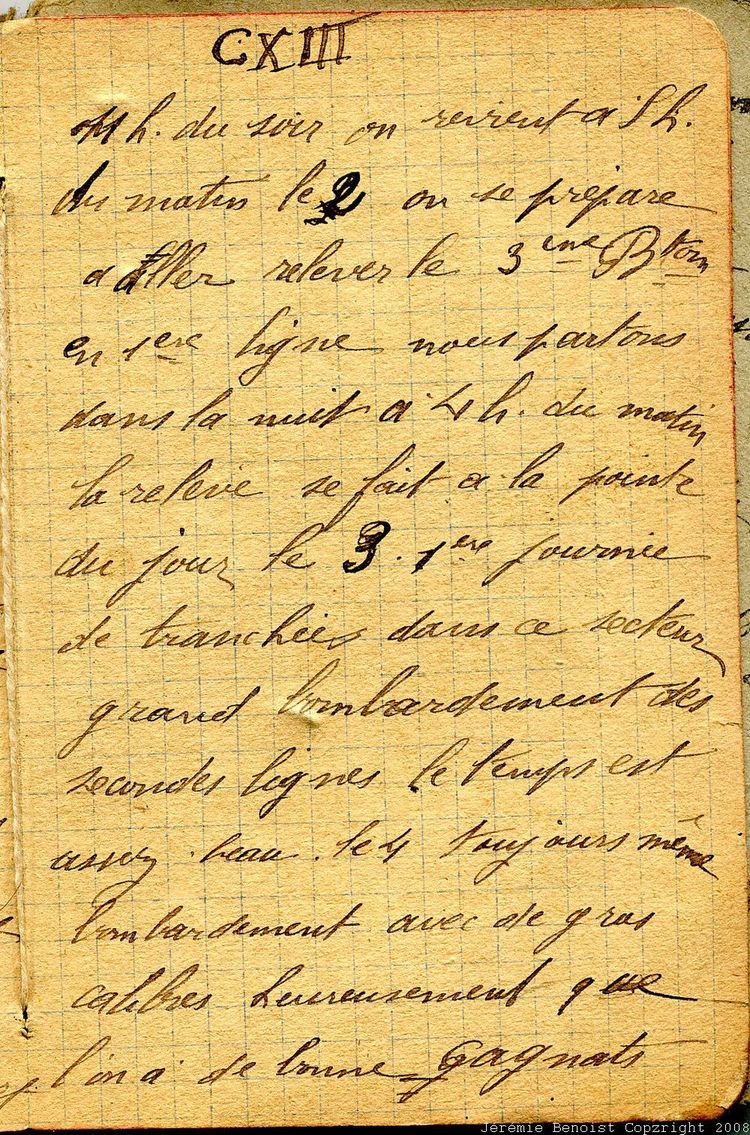 CXIII
11 h. du soir on revient a 5 h.
du matin le 2 on se prépare
a aller relever le 3eme Btom
en 1ere ligne nous partons
dans la nuit a 4 h. du matin
la relève se fait a la pointe
du jour le 3. 1ere journée
de tranchées dans ce secteur
grand bombardement des
secondes lignes le temps est
assez beau. le 4 toujours même
bombardement avec de gros
calibres heureusement que
l'on a de bonne gagnats
Jeremie Benoist Copzright 2008